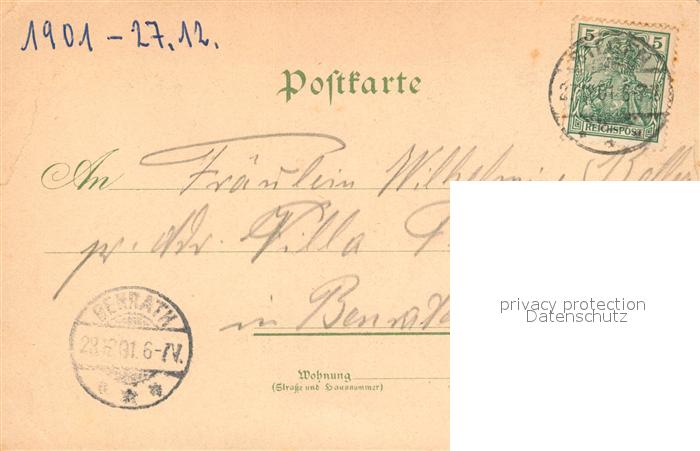 1901 - 27.12.
5 5
REICHSPOST
Postkarte
An Fräulein Wilhelmine
pr. Adr. Villa
in Benrath
BENRATH
28.12.01. 6-7V.
Wohnung
(Straße und Hausnummer)
privacy protection
Datenschutz